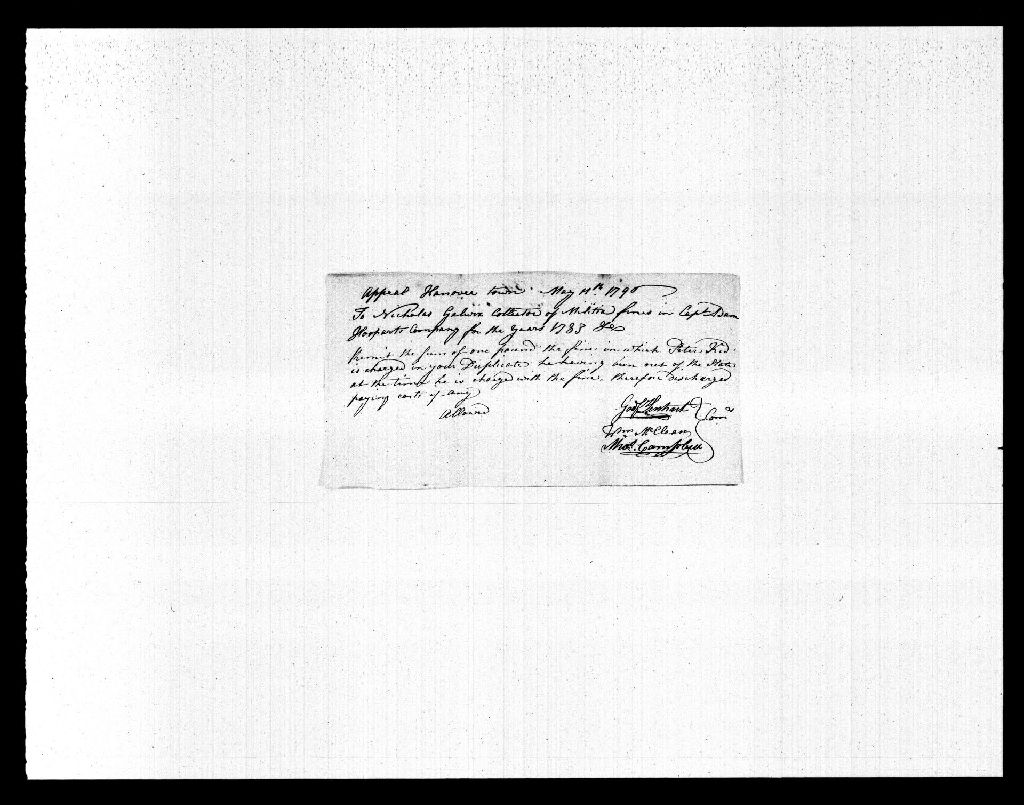 Appeal Hanover town May 11th 1790
To Nicholas Galwix Collector of Militia fines in Capt. Dan
Company for the Years 1783 &c
Remit the sum of one pound the fine in which Peter Kid
is charged in your Duplicate he having been out of the State
at the time he is charged with the fine. therefore discharged
paying costs if any
Allowed
Wm McClean
Thos. Campbell
Com